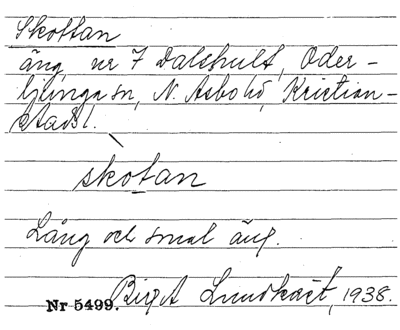 Skottan
äng, nr 7 Dalshult, Oder-
ljunga sn, N. Åsbo hd, Kristian-
stads l.
skotan
Lång och smal äng.
Birgit Lundkvist, 1938.
Nr 5499.